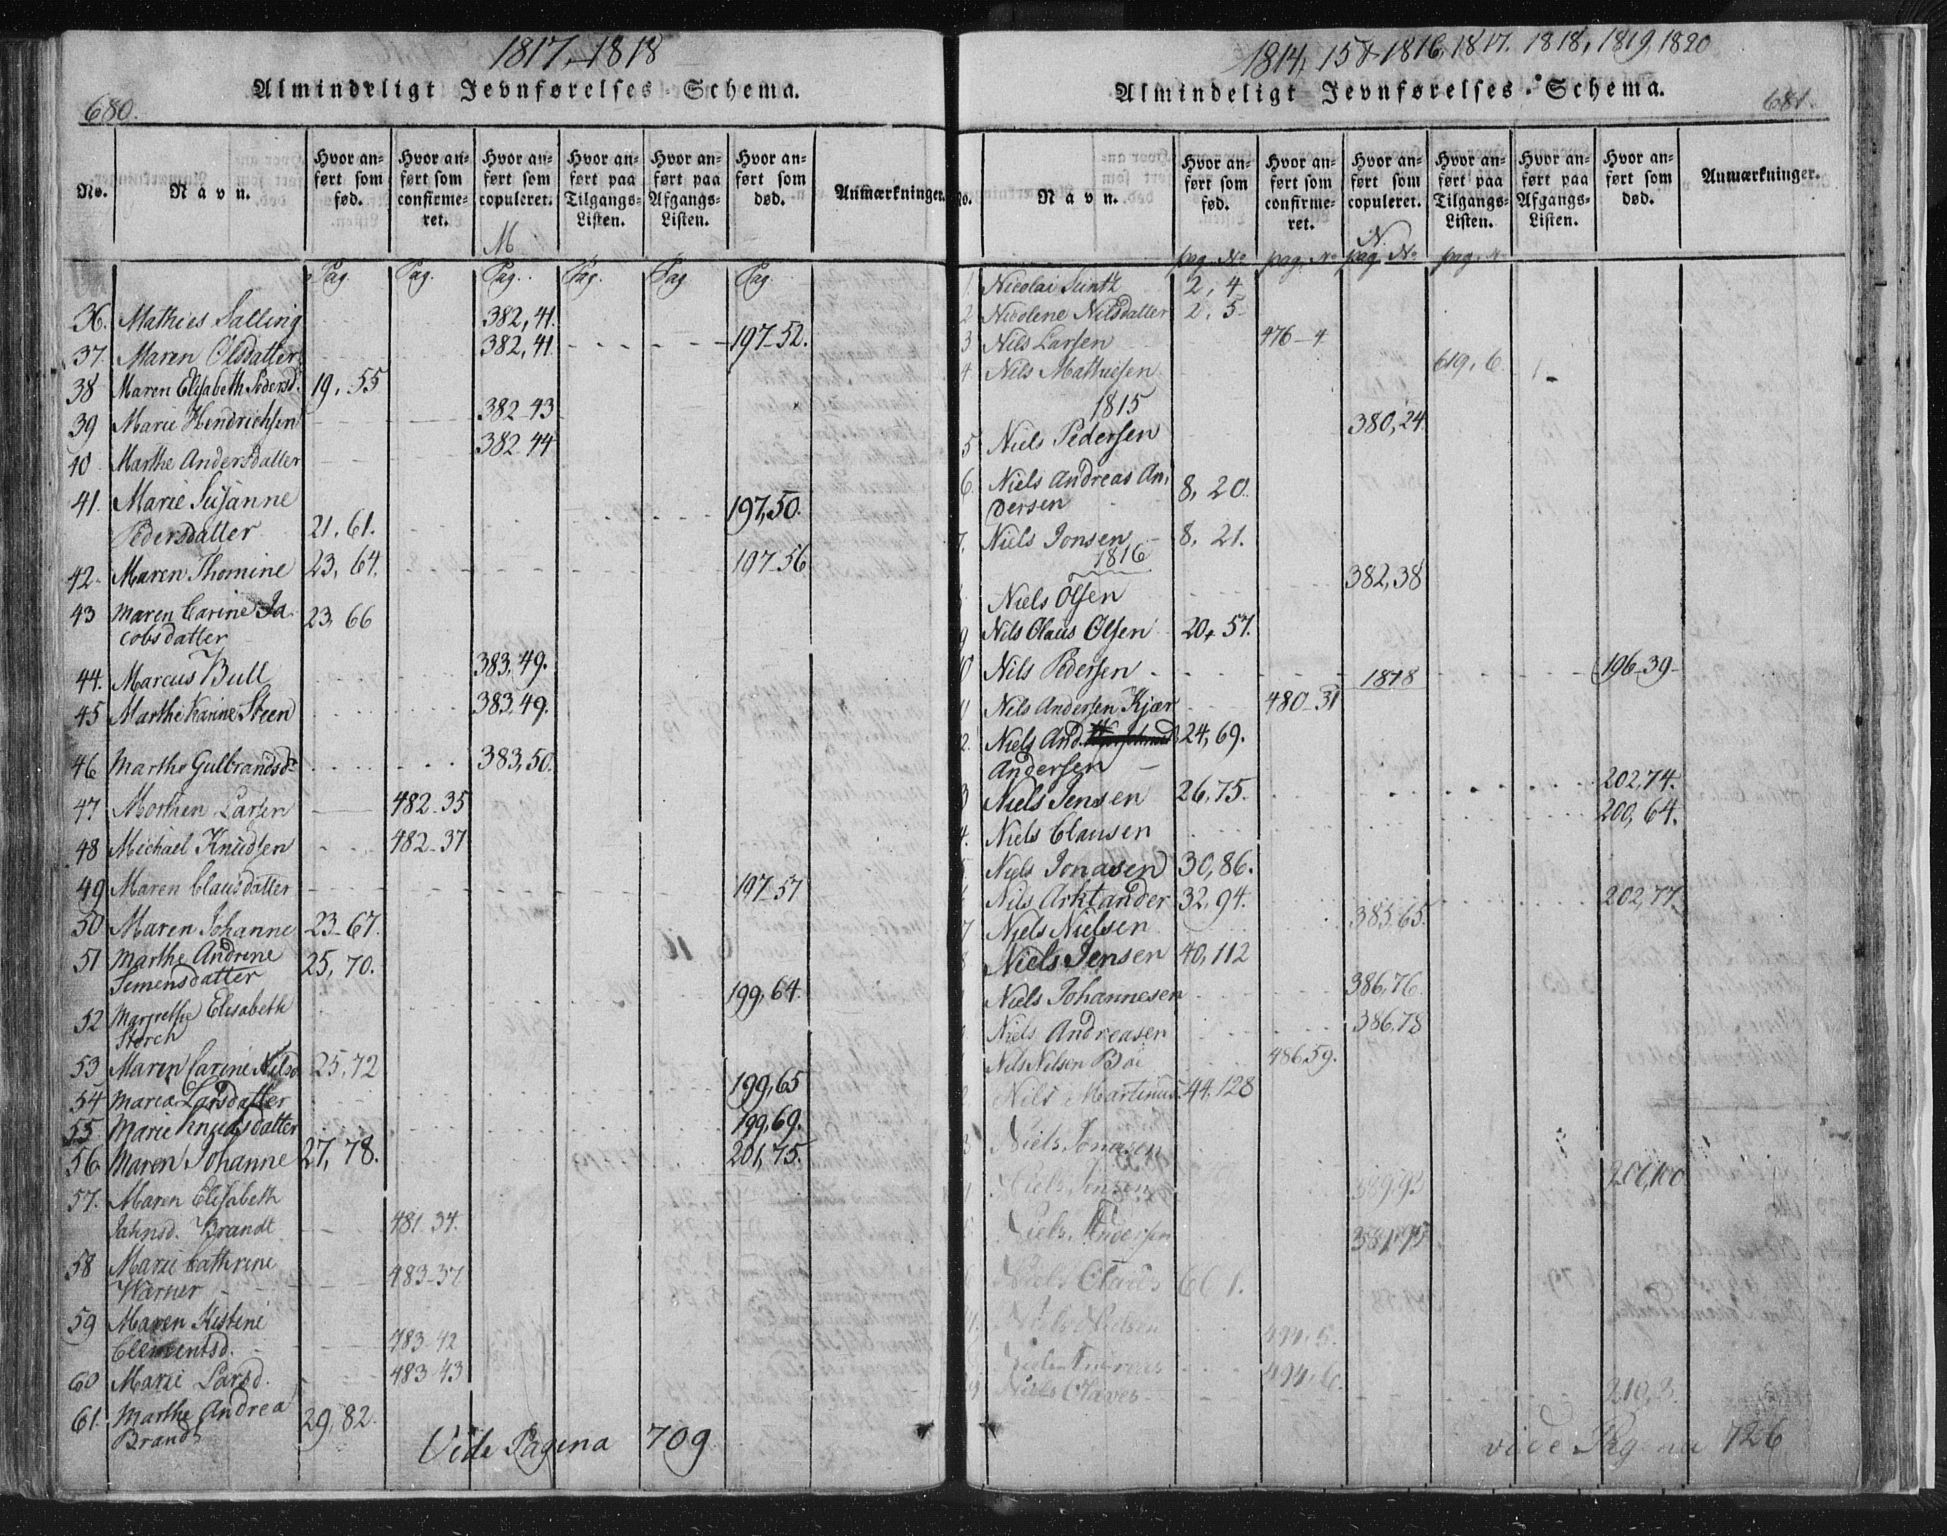 1817, 1818
Almindeligt Jevnførelses-Schema.
680.
No. Navn. Hvor anført som fød. Hvor anført som confirmeret. Hvor anført som copuleret. Hvor anført paa Tilgangs-Listen. Hvor anført paa Afgangs-Listen. Hvor anført som død. Anmærkninger.
M
Pag. Pag. Pag. Pag. Pag Pag.
36. Mathies Salling 382,41.
37. Maren Olsdatter 382,41 197-52.
38 Maren Elisabeth Pedersd. 19,55
39 Marie Hendrichsen 382-43
40 Marthe Andersdatter 382-44
41. Marie Susanne
Pedersdatter 21,61. 197,50.
42- Maren Thomine 23,64. 197-56
43 Maren Carine Ja
cobsdatter 23,66
44. Marcus Bull 383,49.
45 Marthe Karine Steen 383,49.
46 Marthe Gulbrandsd. 383,50.
47 Morthen Larsen 482-35
48 Michael Knudsen 482-37
49 Maren Clausdatter 197-57
50 Maren Johanne 23-67.
51 Marthe Andrine
Simensdatter 25,70.
52 Margrethe Elisabeth
Storch 199,64.
53 Maren Carine Nilsd 25,72
54 Maria Larsdatter 199,65
55 Marie Knudsdatter 199,69.
56 Maren Johanne 27,78. 201,75.
57. Maren Elisabeth
Jahnsd. Brandt 481-34.
58 Marie Cathrine
Warner 483-37
59 Maren Kistine
Clementsd. 483-42
60 Marie Larsd. 483-43
61. Marthe Andrea
Brandt 29,82.
Vide Pagina 709
1814, 15 & 1816, 1817. 1818, 1819, 1820
Almindeligt Jevnførelses-Schema.
681.
No. Navn. Hvor anført som fød. Hvor anført som confirmeret. Hvor anført som copuleret. Hvor anført paa Tilgangs-Listen. Hvor anført paa Afgangs-Listen. Hvor anført som død. Anmærkninger.
N.
pag. No pag. No pag. No pag. No
1 Nicolai 2,4
2 Nicolene Nilsdatter 2,5
3 Nils Larsen 476-4
4 Nils Mathiesen 619,6
1815
5 Niels Pedersen 380,24
6. Niels Andreas An
dersen 8,20
7. Niels Jonsen 8,21.
1816
Niels Olsen 382,38
9 Nils Claus Olsen 20,57.
10 Nils Pedersen 196-39
1818
11 Nils Andersen Kjær 480-31
2. Niels And. 24,69.
Andersen
3 Niels Jensen 26,75. 202,74.
4. Niels Clausen 200,64.
5 Niels Jonasen 30,86.
6 Nils Arktander 32,94. 202,77
7 Niels Nielsen 385,65.
8 Niels Jensen 40,112
Niels Johannesen 386,76
Niels Andreasen 386,78
Nils Nilsen Boe 486,59.
2 Nils Martinus 44,128
3 Niels Jonasen
Niels Jensen
Niels Andersen
Niels Claus 60
Niels Nielsen 494,5.
Niels Andreas 494,6.
Niels Claves 210,3.
vide Pagina 726